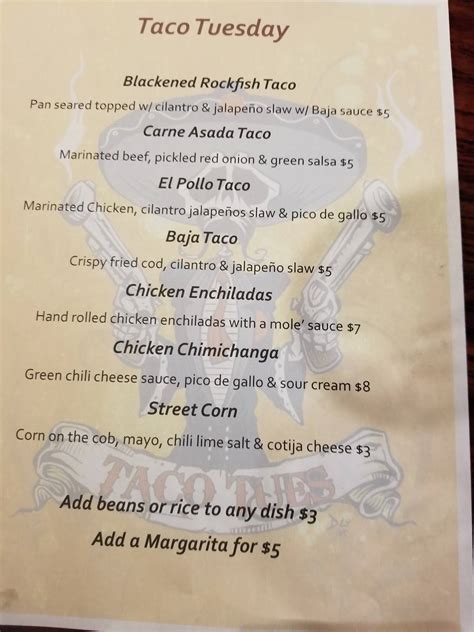 Taco Tuesday
Blackened Rockfish Taco
Pan seared topped w/ cilantro & jalapeño slaw w/ Baja sauce $5
Carne Asada Taco
Marinated beef, pickled red onion & green salsa $5
El Pollo Taco
Marinated Chicken, cilantro jalapeños slaw & pico de gallo $5
Baja Taco
Crispy fried cod, cilantro & jalapeño slaw $5
Chicken Enchiladas
Hand rolled chicken enchiladas with a mole' sauce $7
Chicken Chimichanga
Green chili cheese sauce, pico de gallo & sour cream $8
Street Corn
Corn on the cob, mayo, chili lime salt & cotija cheese $3
TACO TUES
Add beans or rice to any dish $3
Add a Margarita for $5